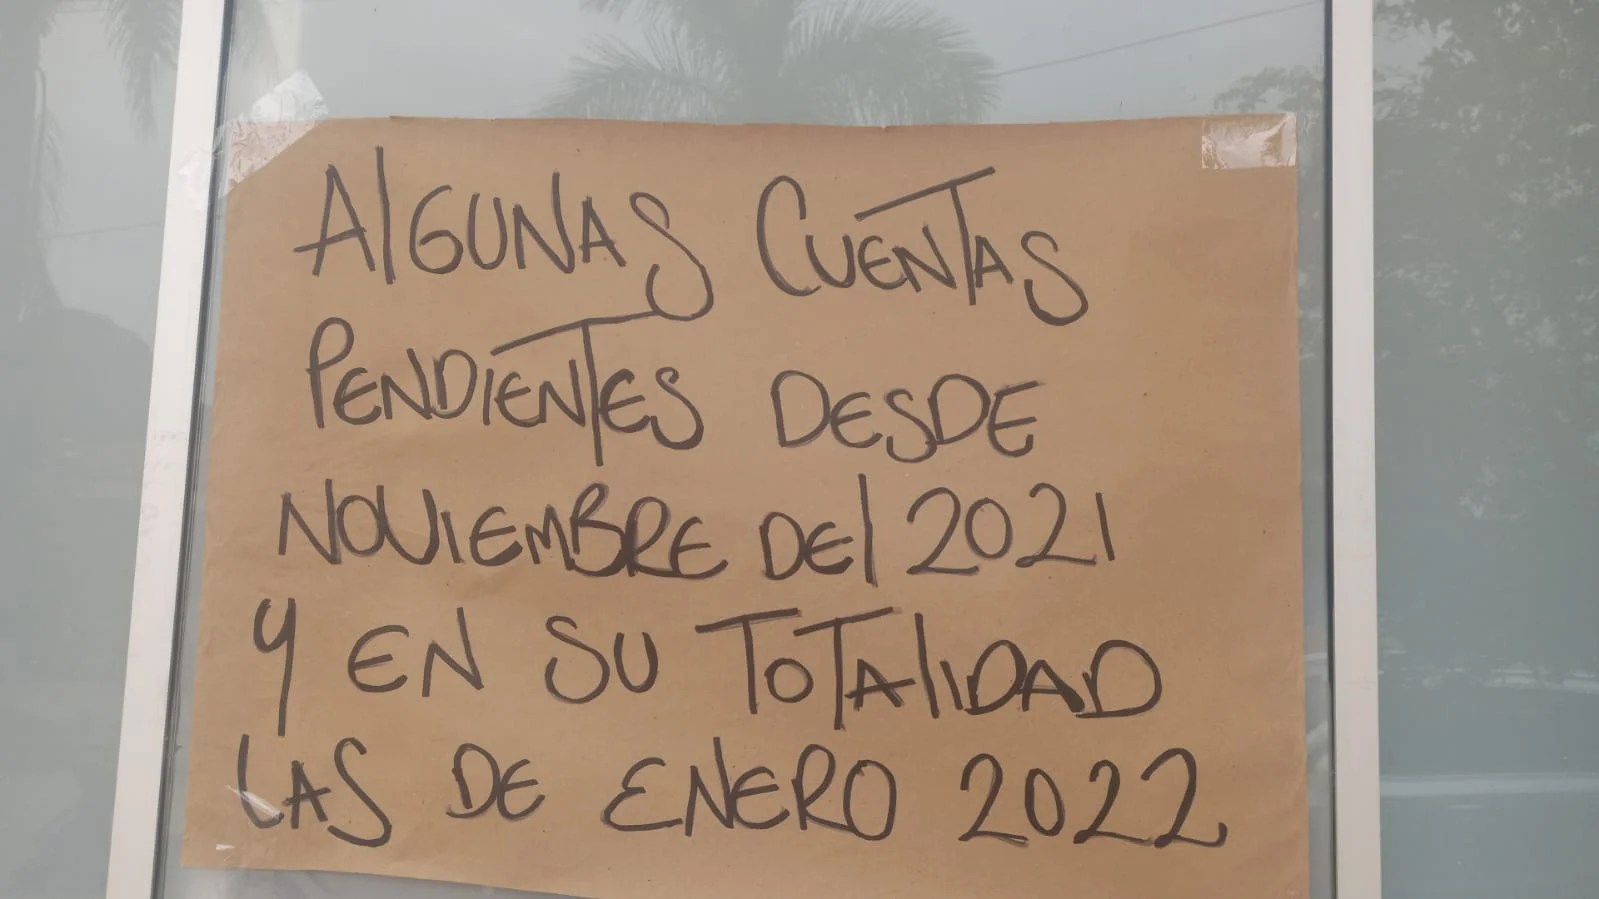 ALGUNAS CUENTAS
PENDIENTES DESDE
NOVIEMBRE DEL 2021
Y EN SU TOTALIDAD
LAS DE ENERO 2022